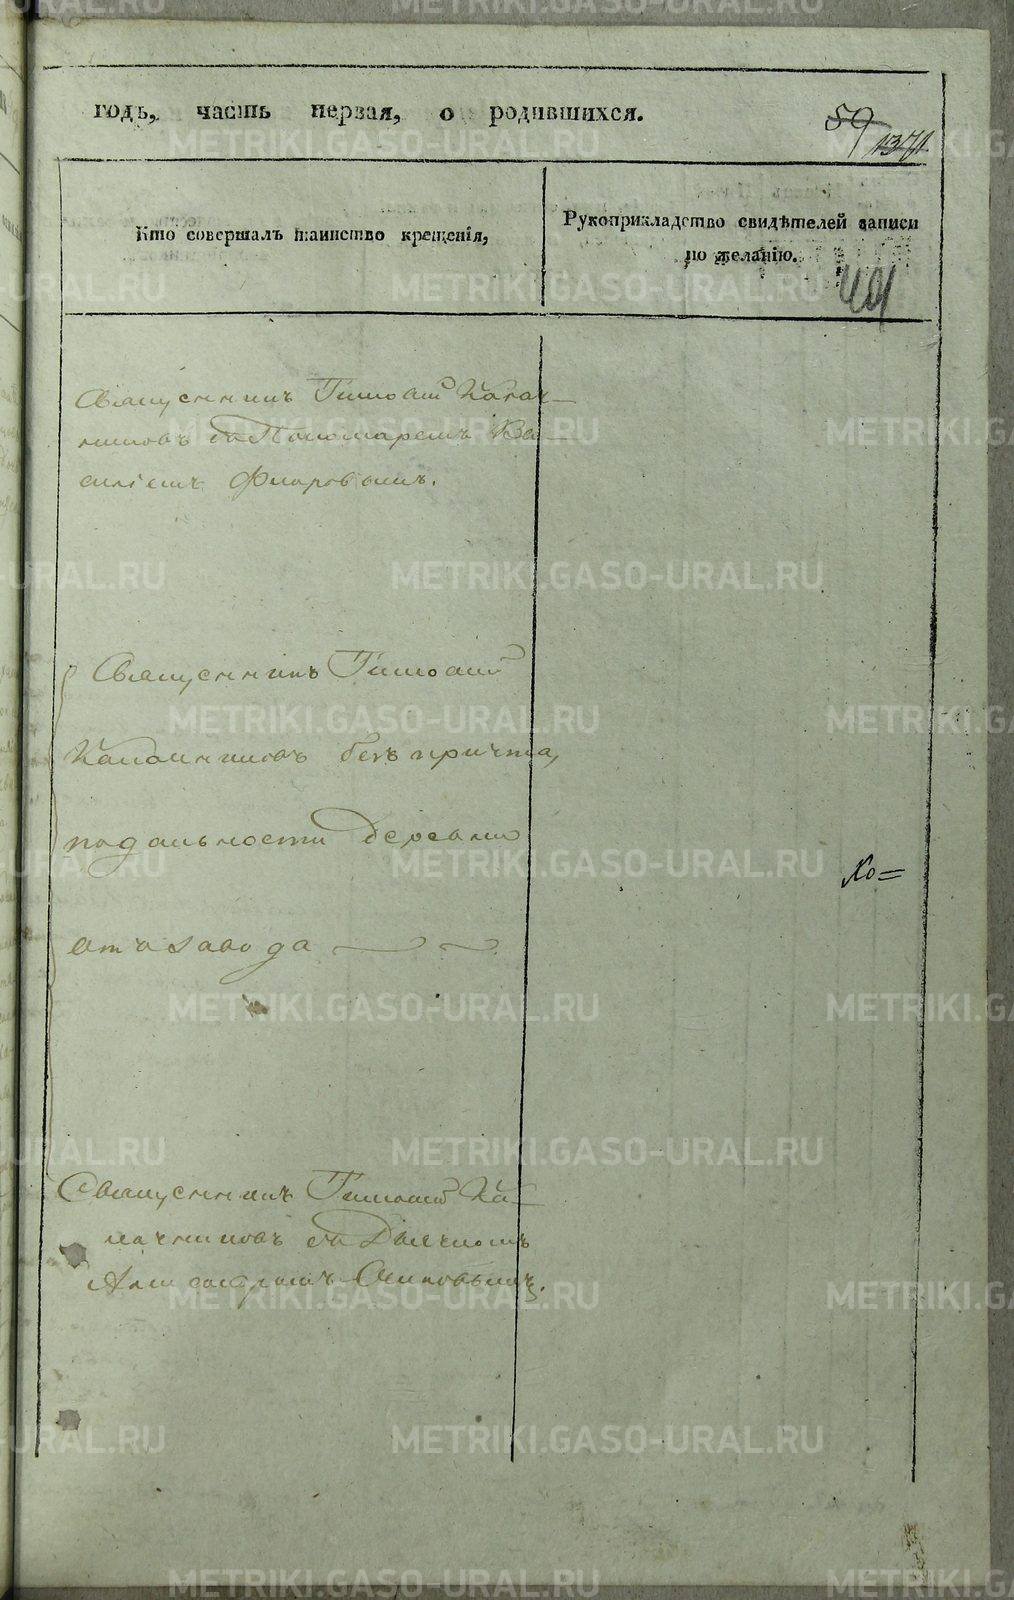 годъ, часть первая, о родившихся.
59
1371
Кто совершалъ таинство крещенія,
Рукоприкладство свидѣтелей записи
по желанію.
Священникъ Тимоѳей Калач-
никовъ съ Пономаремъ Ва-
силіемъ
Священникъ Тимоѳей
безъ причта,
по дальности деревни
отъ завода
Хо=
Священникъ Тимоѳей Ка-
лачниковъ съ Дьячкомъ
Александромъ Осиповымъ.
METRIKI.GASO-URAL.RU